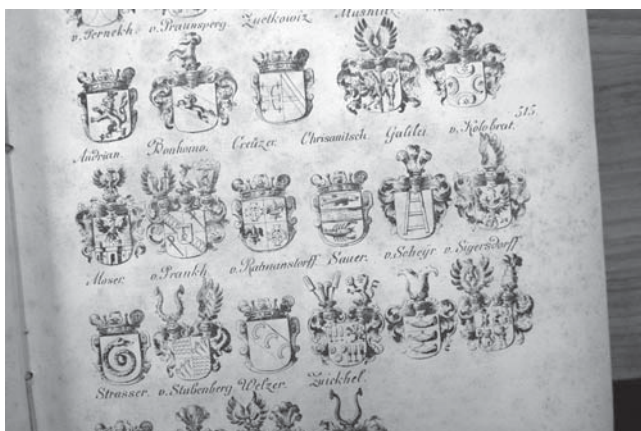 v. Ternekh. v. Praunsperg. Zuetkowiz
Andrian. Bonhomo. Creüzer. Chrisanitsch. Galilei v. Kolobrat. 313.
Moser. v. Prankh. v. Ratmanstorff. Sauer. v. Scheyr v. Sigersdorff
Strasser. v. Stubenberg Welzer. Zuickhel.